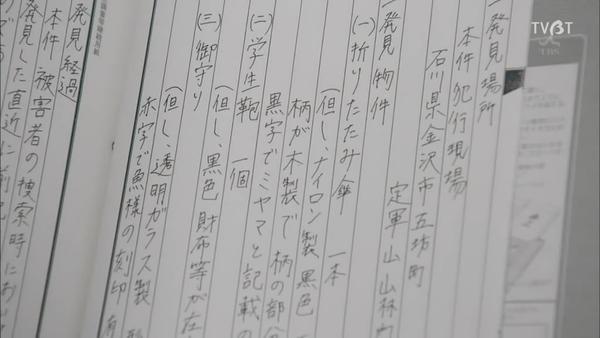 一発見場所
本件犯行現場
石川県金沢市五坊町
定軍山山林内
一発見物件
(一)折りたたみ傘 一本
(但し、ナイロン製黒色
柄が木製で柄の部分
黒字でミヤマと記載の
(二)学生鞄 一個
(但し、黒色財布等が在
(三)御守り
(但し、透明ガラス製
赤字で魚様の刻印有
発見経過
本件被害者の捜索時にお
発見した直近に
TVBT
TBS